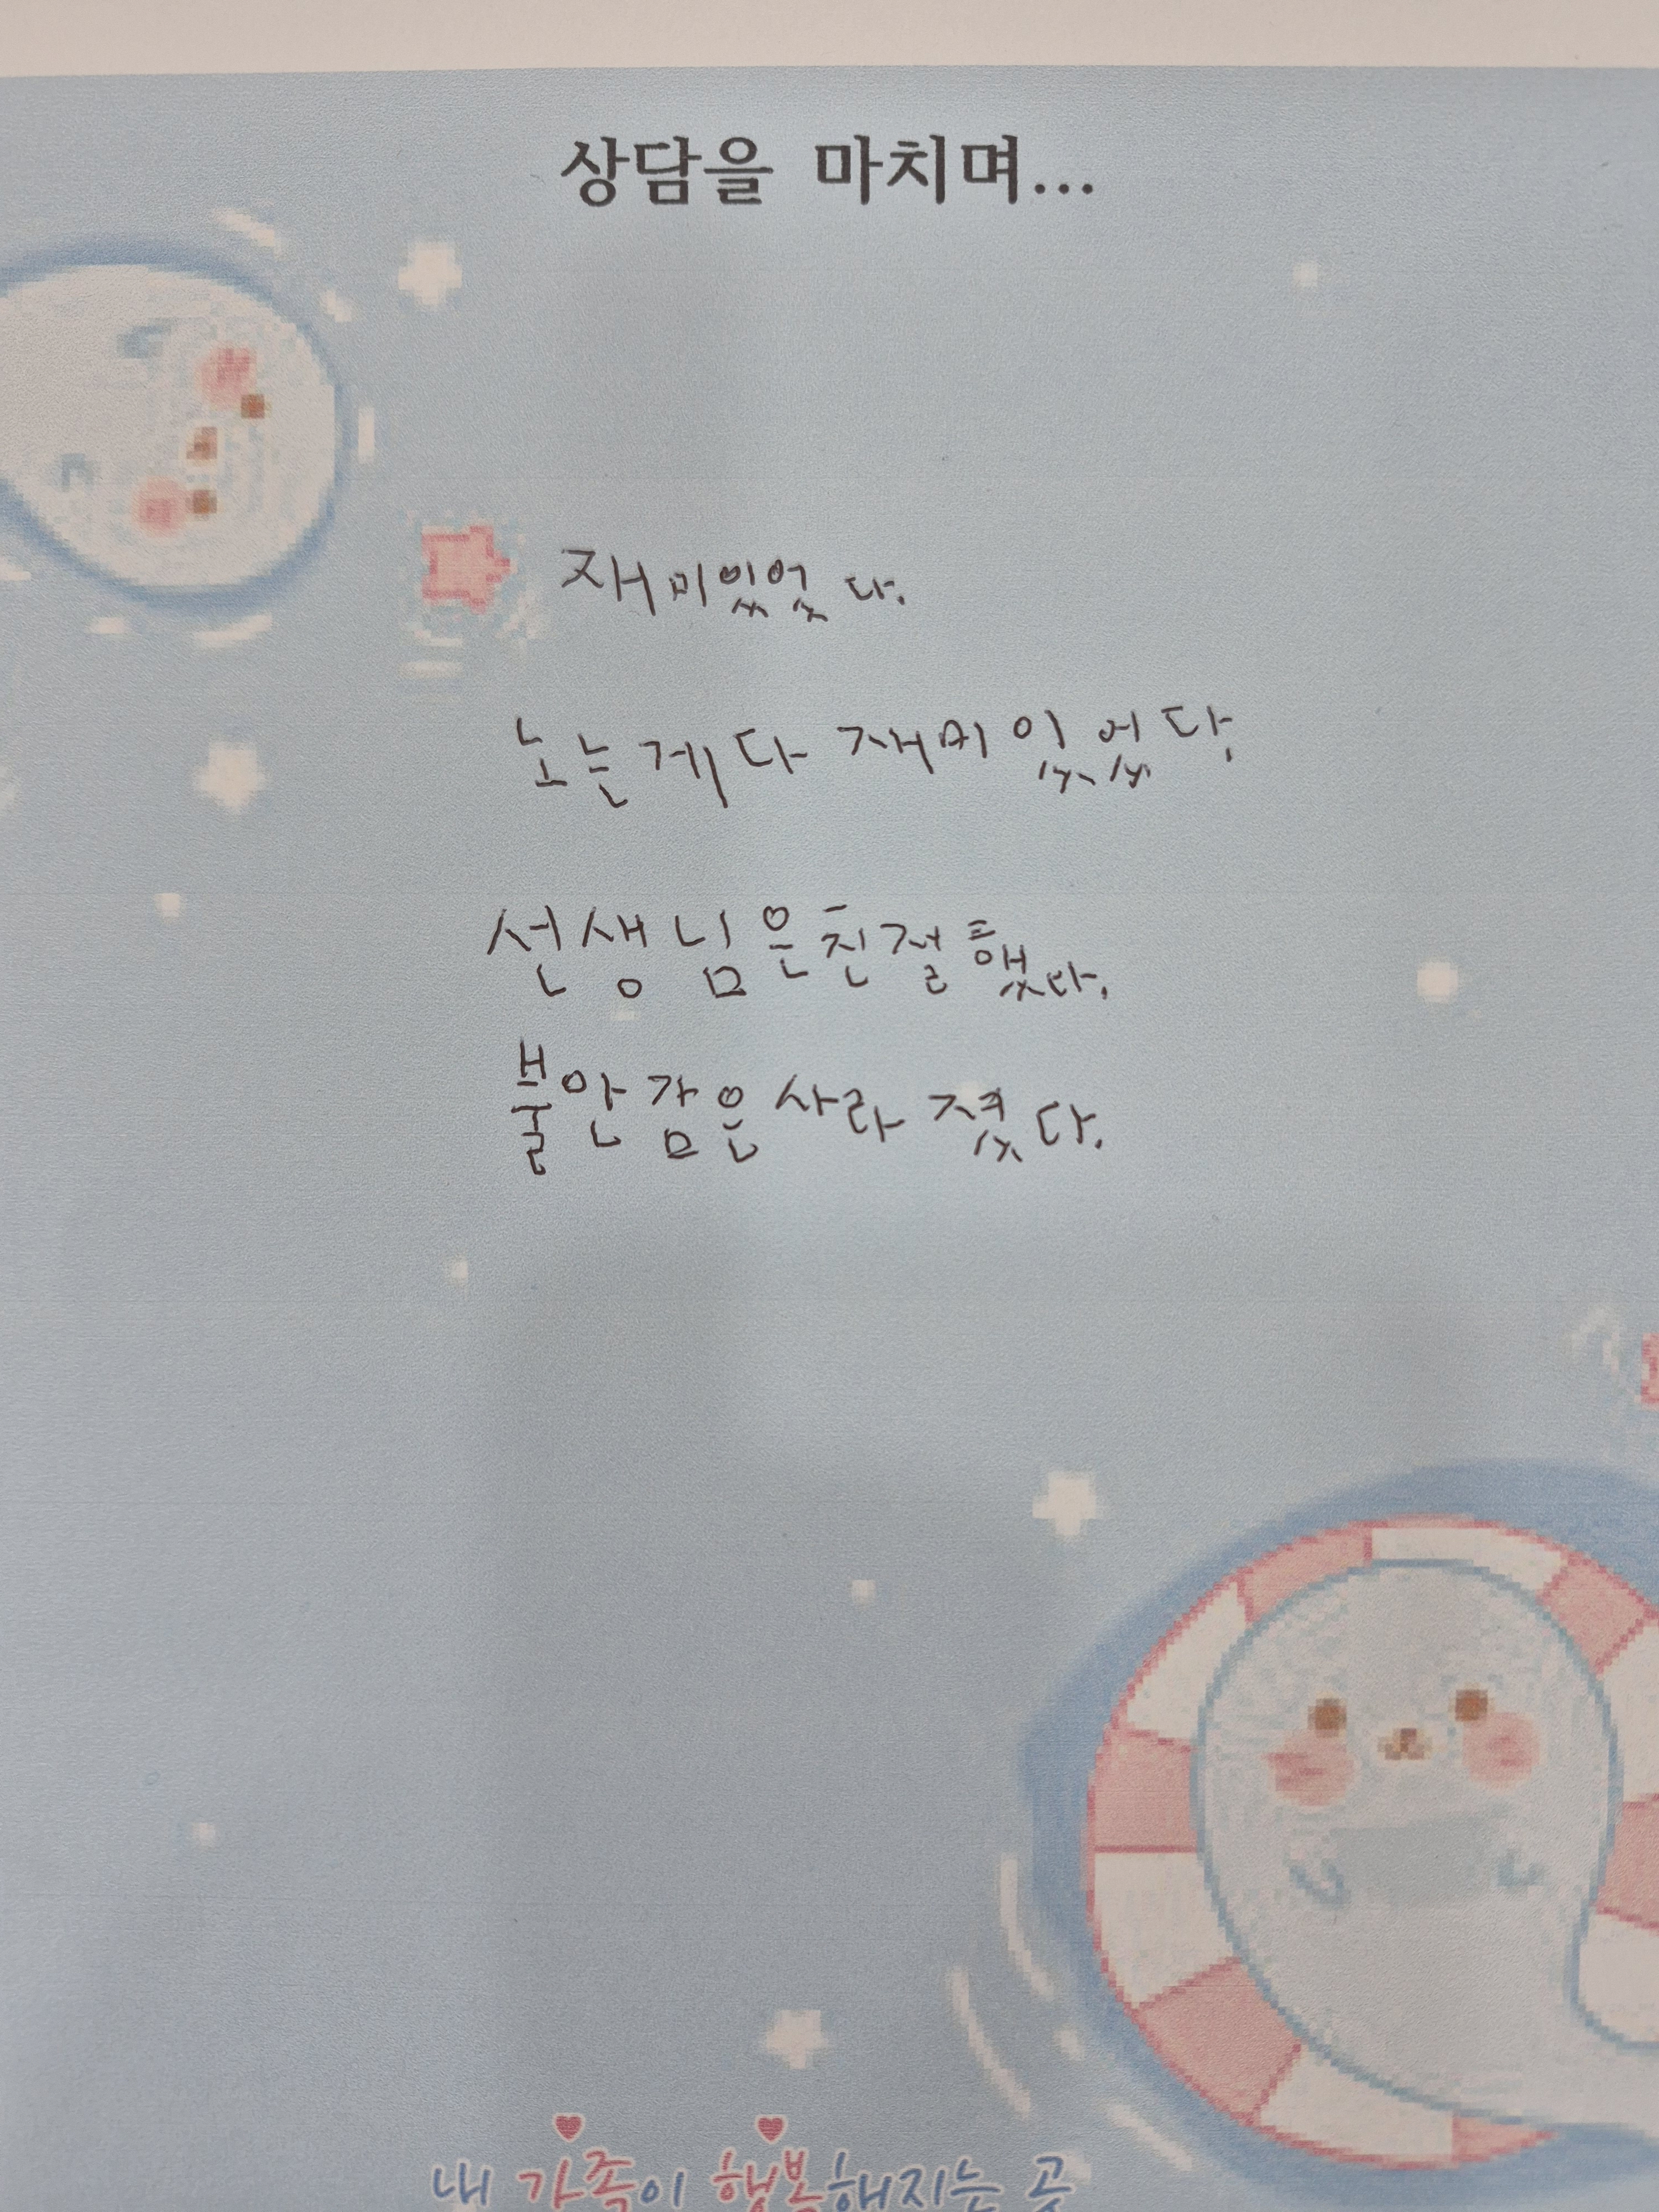 상담을 마치며...
재미있었다.
노는게 다 재미있었다.
선생님은 친절했다.
불안감은 사라졌다.
내 가족이 행복해지는 곳